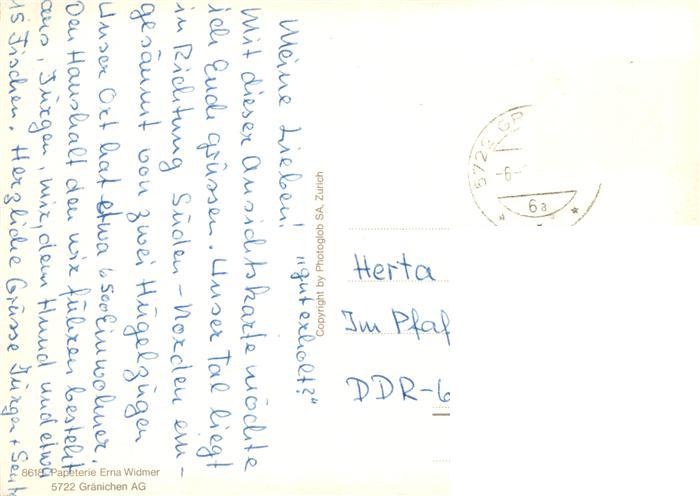 Meine Lieben! „gut erholt?“
Mit dieser Ansichtskarte möchte
ich Euch grüssen. Unser Tal liegt
in Richtung Süden-Norden ein-
gesäumt von zwei Hügelzügen
Unser Ort hat etwa 6500 Einwohner.
Den Haushalt den wir führen besteht
aus, Jürgen, mir, dem Hund und etwa
15 Fischen. Herzliche Grüsse Jürgen +
Copyright by Photoglob SA, Zurich
8618 Papeterie Erna Widmer
5722 Gränichen AG
5722 GR
-6-
6a
Herta
Im Pfaf
DDR-6